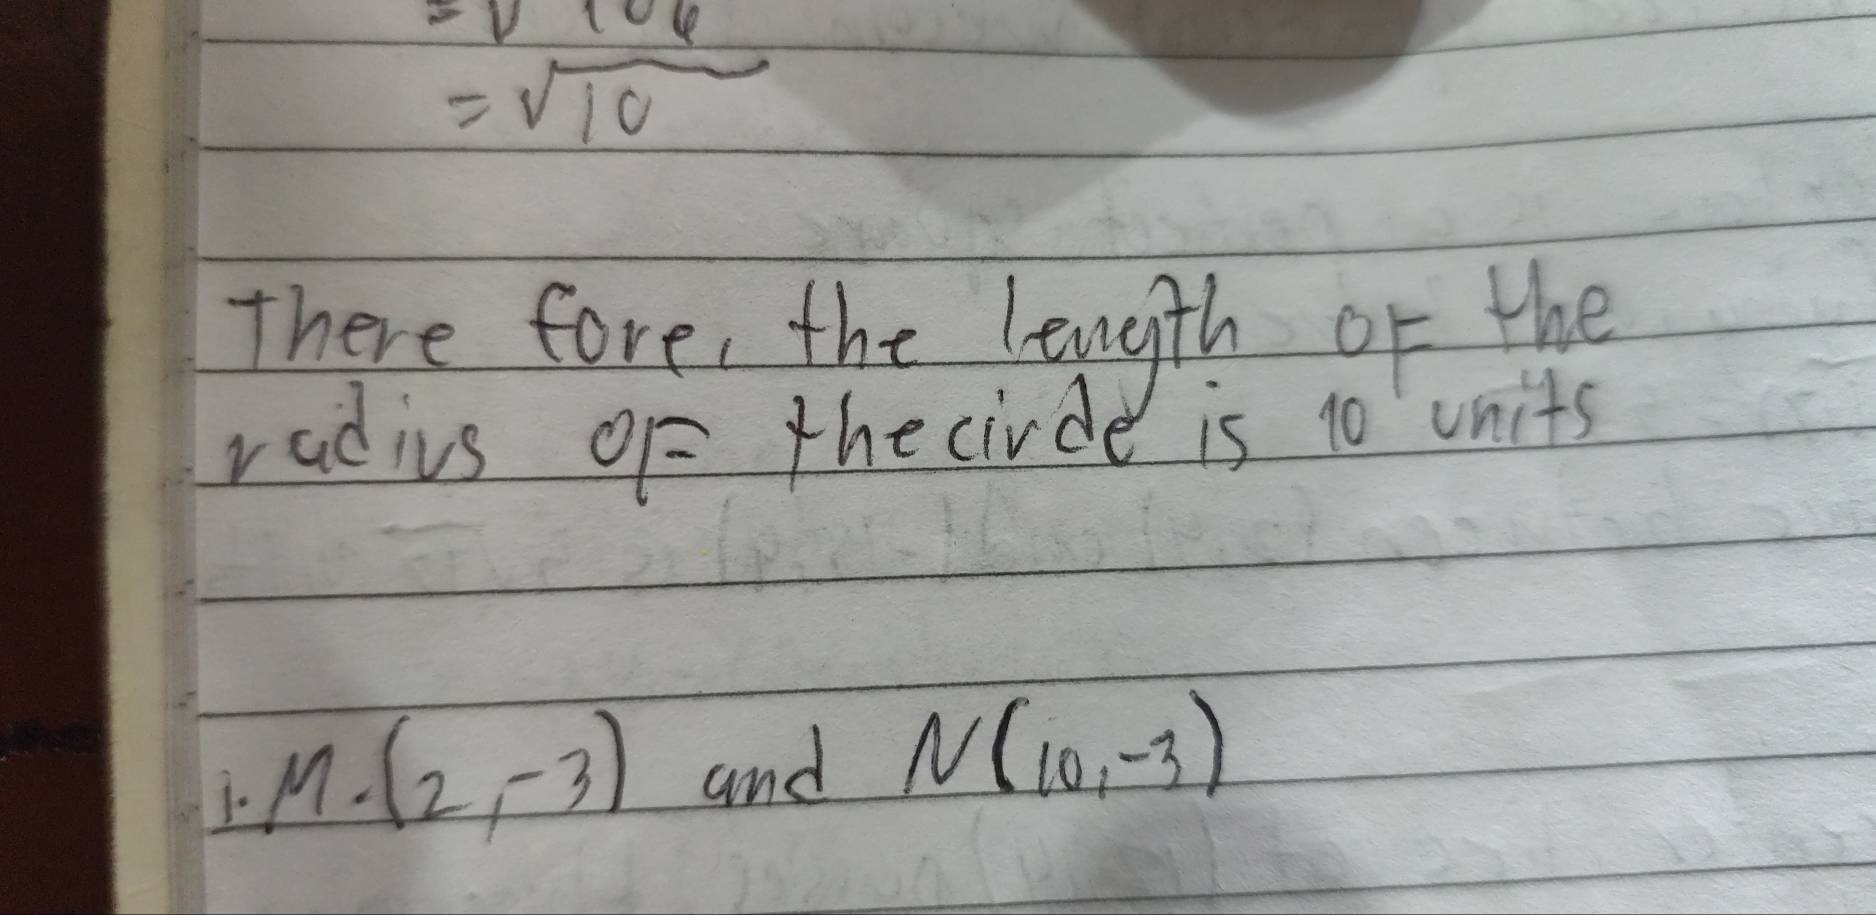 = √106
= √10
There fore, the length OF the
radius OF the circle is 10 units
1. M. (2, -3) and N (10, -3)